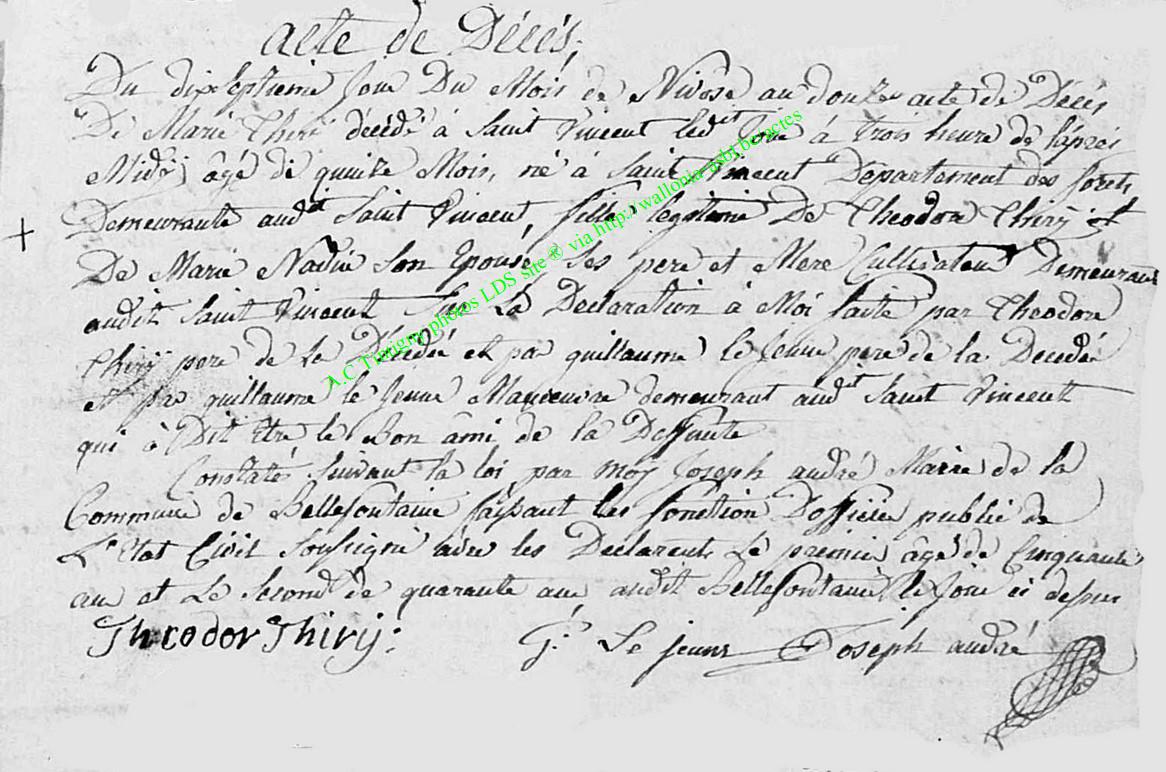 acte de Décés,
Du dixseptieme Jour Du Mois de Nivose an douze acte de Décés
De Marie Thiri décédé à Saint Vincent ledit Jour à trois heure de l'aprés
Midÿ âgé de quinze Mois, né à Saint Vincent Departement des forets
Demeurante audit Saint Vincent fille legitime De Theodore Thirÿ et
De Marie Son Epouse, Ses pere et Mere Cultivateur Demeurant
audit Saint Vincent Sur La Declaration à Moi faite par Theodore
Thirÿ pere de La Décédée et par guillaume le Jeune pere de la Decedée
et par guillaume le Jeune Maneuvre demeurant audit Saint Vincent
qui à Dit Etre le Bon ami de la Deffunte
Constaté Suivant la loi par moy Joseph andré Maire de la
Commune de Bellefontaine faisant les fonction D'officier public de
L'Etat Civil Soussigné avec les Declarents Le premier âgé de Cinquante
ans et Le Second de quarante ans audit Bellefontaine le Jour ci dessus
Theodor Thirÿ:
G. Le jeune
Joseph andré
A.C Tintigny photos LDS site ® via http://wallonia-asbl.be/actes